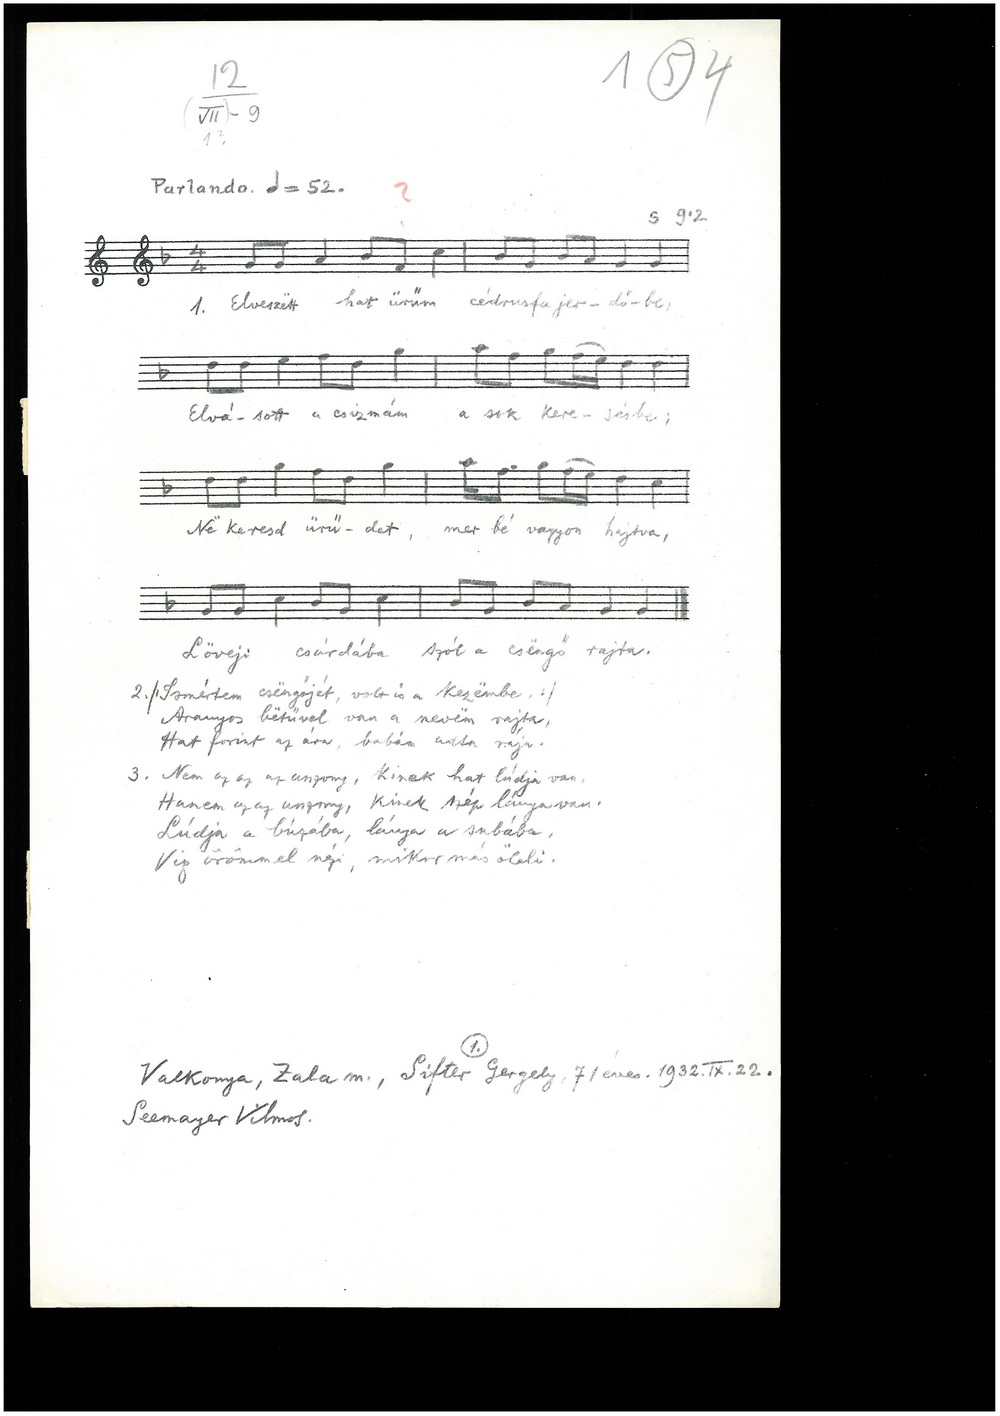 12
(VII)-9
1?
1 (5) 4
Parlando. ♩= 52.
?
s 9·2
4
4
1. Elveszëtt hat ürüm cédrusfa jer-dő-be;
Elvá-sott a csizmám a sok kere-sésbe;
Në keresd ürü-det, mer bé vagyon hajtva,
Löveji csárdába szól a csëngő rajta.
2./: Ismértem csëngőjét, volt is a kezëmbe. :/
Aranyos bëtűvel van a nevëm rajta,
Hat forint az ára, babám adta rája.
3. Nem az az az asszony, kinek hat lúdja van.
Hanem az az asszony, kinek szép lánya van.
Lúdja a búzába, lánya a subába,
Víg örömmel nézi, mikor más öleli.
1.
Valkonya, Zala m., Sifter Gergely, 71 éves. 1932.IX.22.
Seemayer Vilmos.